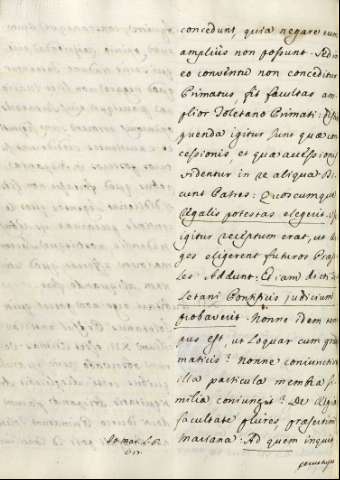 concedunt, quia negare cum
amplius non possunt. Sed in
eo conventu non conceditur
Primatus, fit facultas am-
plior Toletano Primati:
quenda igitur sunt quæ con-
cessionis, et quæ accessionis
videntur in re aliqua. Di-
cunt Patres: Quoscumque
Regalis potestas elegerit.
igitur receptum erat, ut Re-
ges eligerent futuros Præsu-
les. Addunt: Et iam dicti To-
letani Pontificis judicium
probaverit. Nonne idem tem-
pus est, ut loquar cum gram-
maticis? Nonne coniunctio
illa particula membra si-
milia coniungit? De Regia
facultate plures, præsertim
Mariana: Ad quem inquit